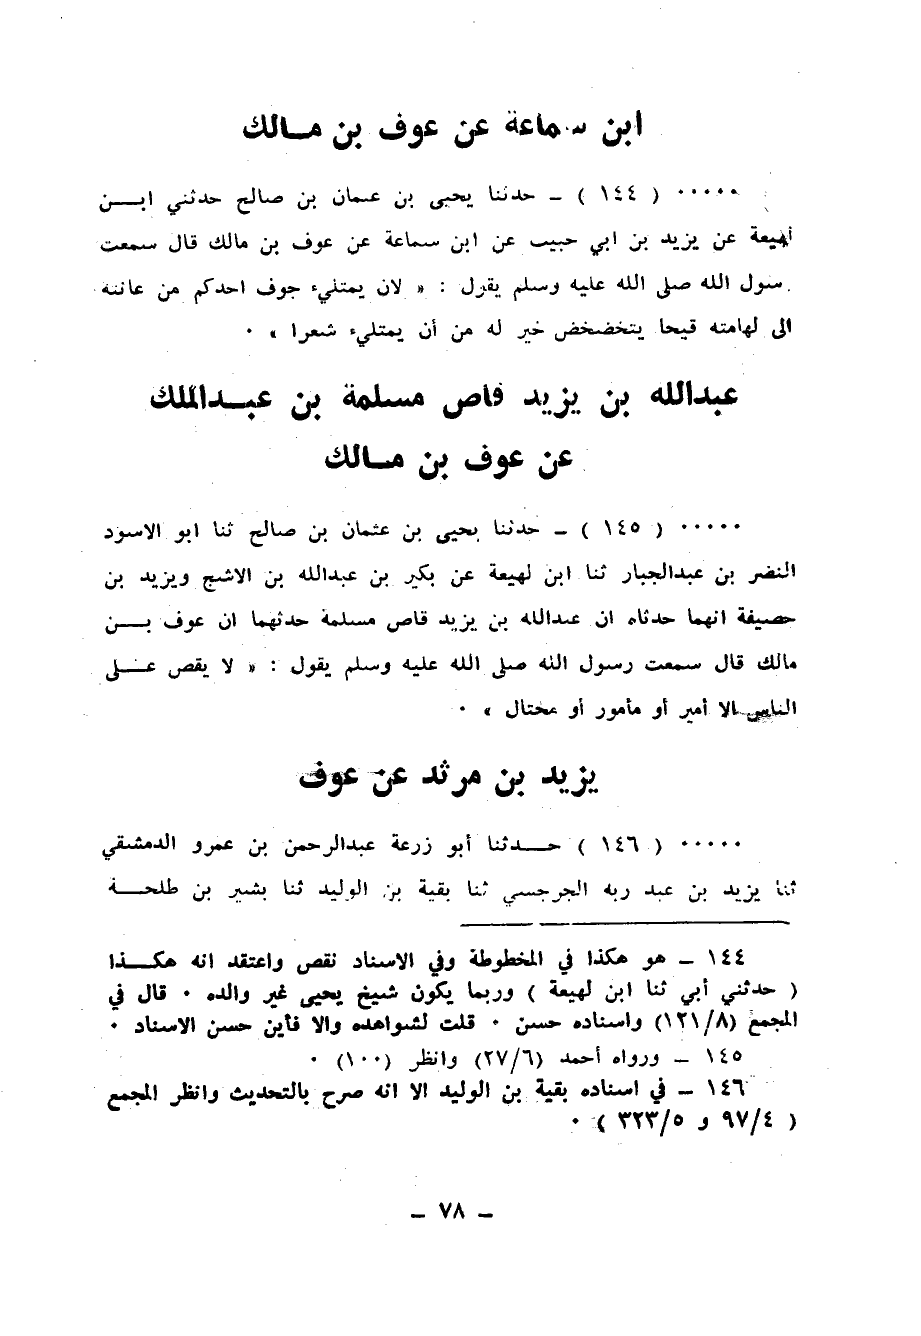 ابن سماعة عن عوف بن مالك
٠٠٠٠٠ ( ١٤٤ ) ــ حدثنا يحيى بن عثمان بن صالح حدثني ابن
لهيعة عن يزيد بن ابي حبيب عن ابن سماعة عن عوف بن مالك قال سمعت
رسول الله صلى الله عليه وسلم يقول : « لان يمتليء جوف احدكم من عانته
الى لهامته قيحا يتخضخض خير له من أن يمتليء شعرا » ٠
عبدالله بن يزيد قاص مسلمة بن عبدالملك
عن عوف بن مالك
٠٠٠٠٠ ( ١٤٥ ) ــ حدثنا يحيى بن عثمان بن صالح ثنا ابو الاسود
النضر بن عبدالجبار ثنا ابن لهيعة عن بكير بن عبدالله بن الاشج ويزيد بن
حصيفة انهما حدثاه ان عبدالله بن يزيد قاص مسلمة حدثهما ان عوف بن
مالك قال سمعت رسول الله صلى الله عليه وسلم يقول : « لا يقص على
الناس الا أمير أو مأمور أو مختال » ٠
يزيد بن مرثد عن عوف
٠٠٠٠٠ ( ١٤٦ ) حدثنا أبو زرعة عبدالرحمن بن عمرو الدمشقي
ثنا يزيد بن عبد ربه الجرجسي ثنا بقية بن الوليد ثنا بشير بن طلحة
١٤٤ ــ هو هكذا في المخطوطة وفي الاسناد نقص واعتقد انه هكذا
( حدثني أبي ثنا ابن لهيعة ) وربما يكون شيخ يحيى غير والده ٠ قال في
المجمع (١٢١/٨) واسناده حسن ٠ قلت لشواهده والا فأين حسن الاسناد ٠
١٤٥ ــ ورواه أحمد (٢٧/٦) وانظر (١٠٠) ٠
١٤٦ ــ في اسناده بقية بن الوليد الا انه صرح بالتحديث وانظر المجمع
( ٩٧/٤ و ٣٢٣/٥ ) ٠
ــ ٧٨ ــ